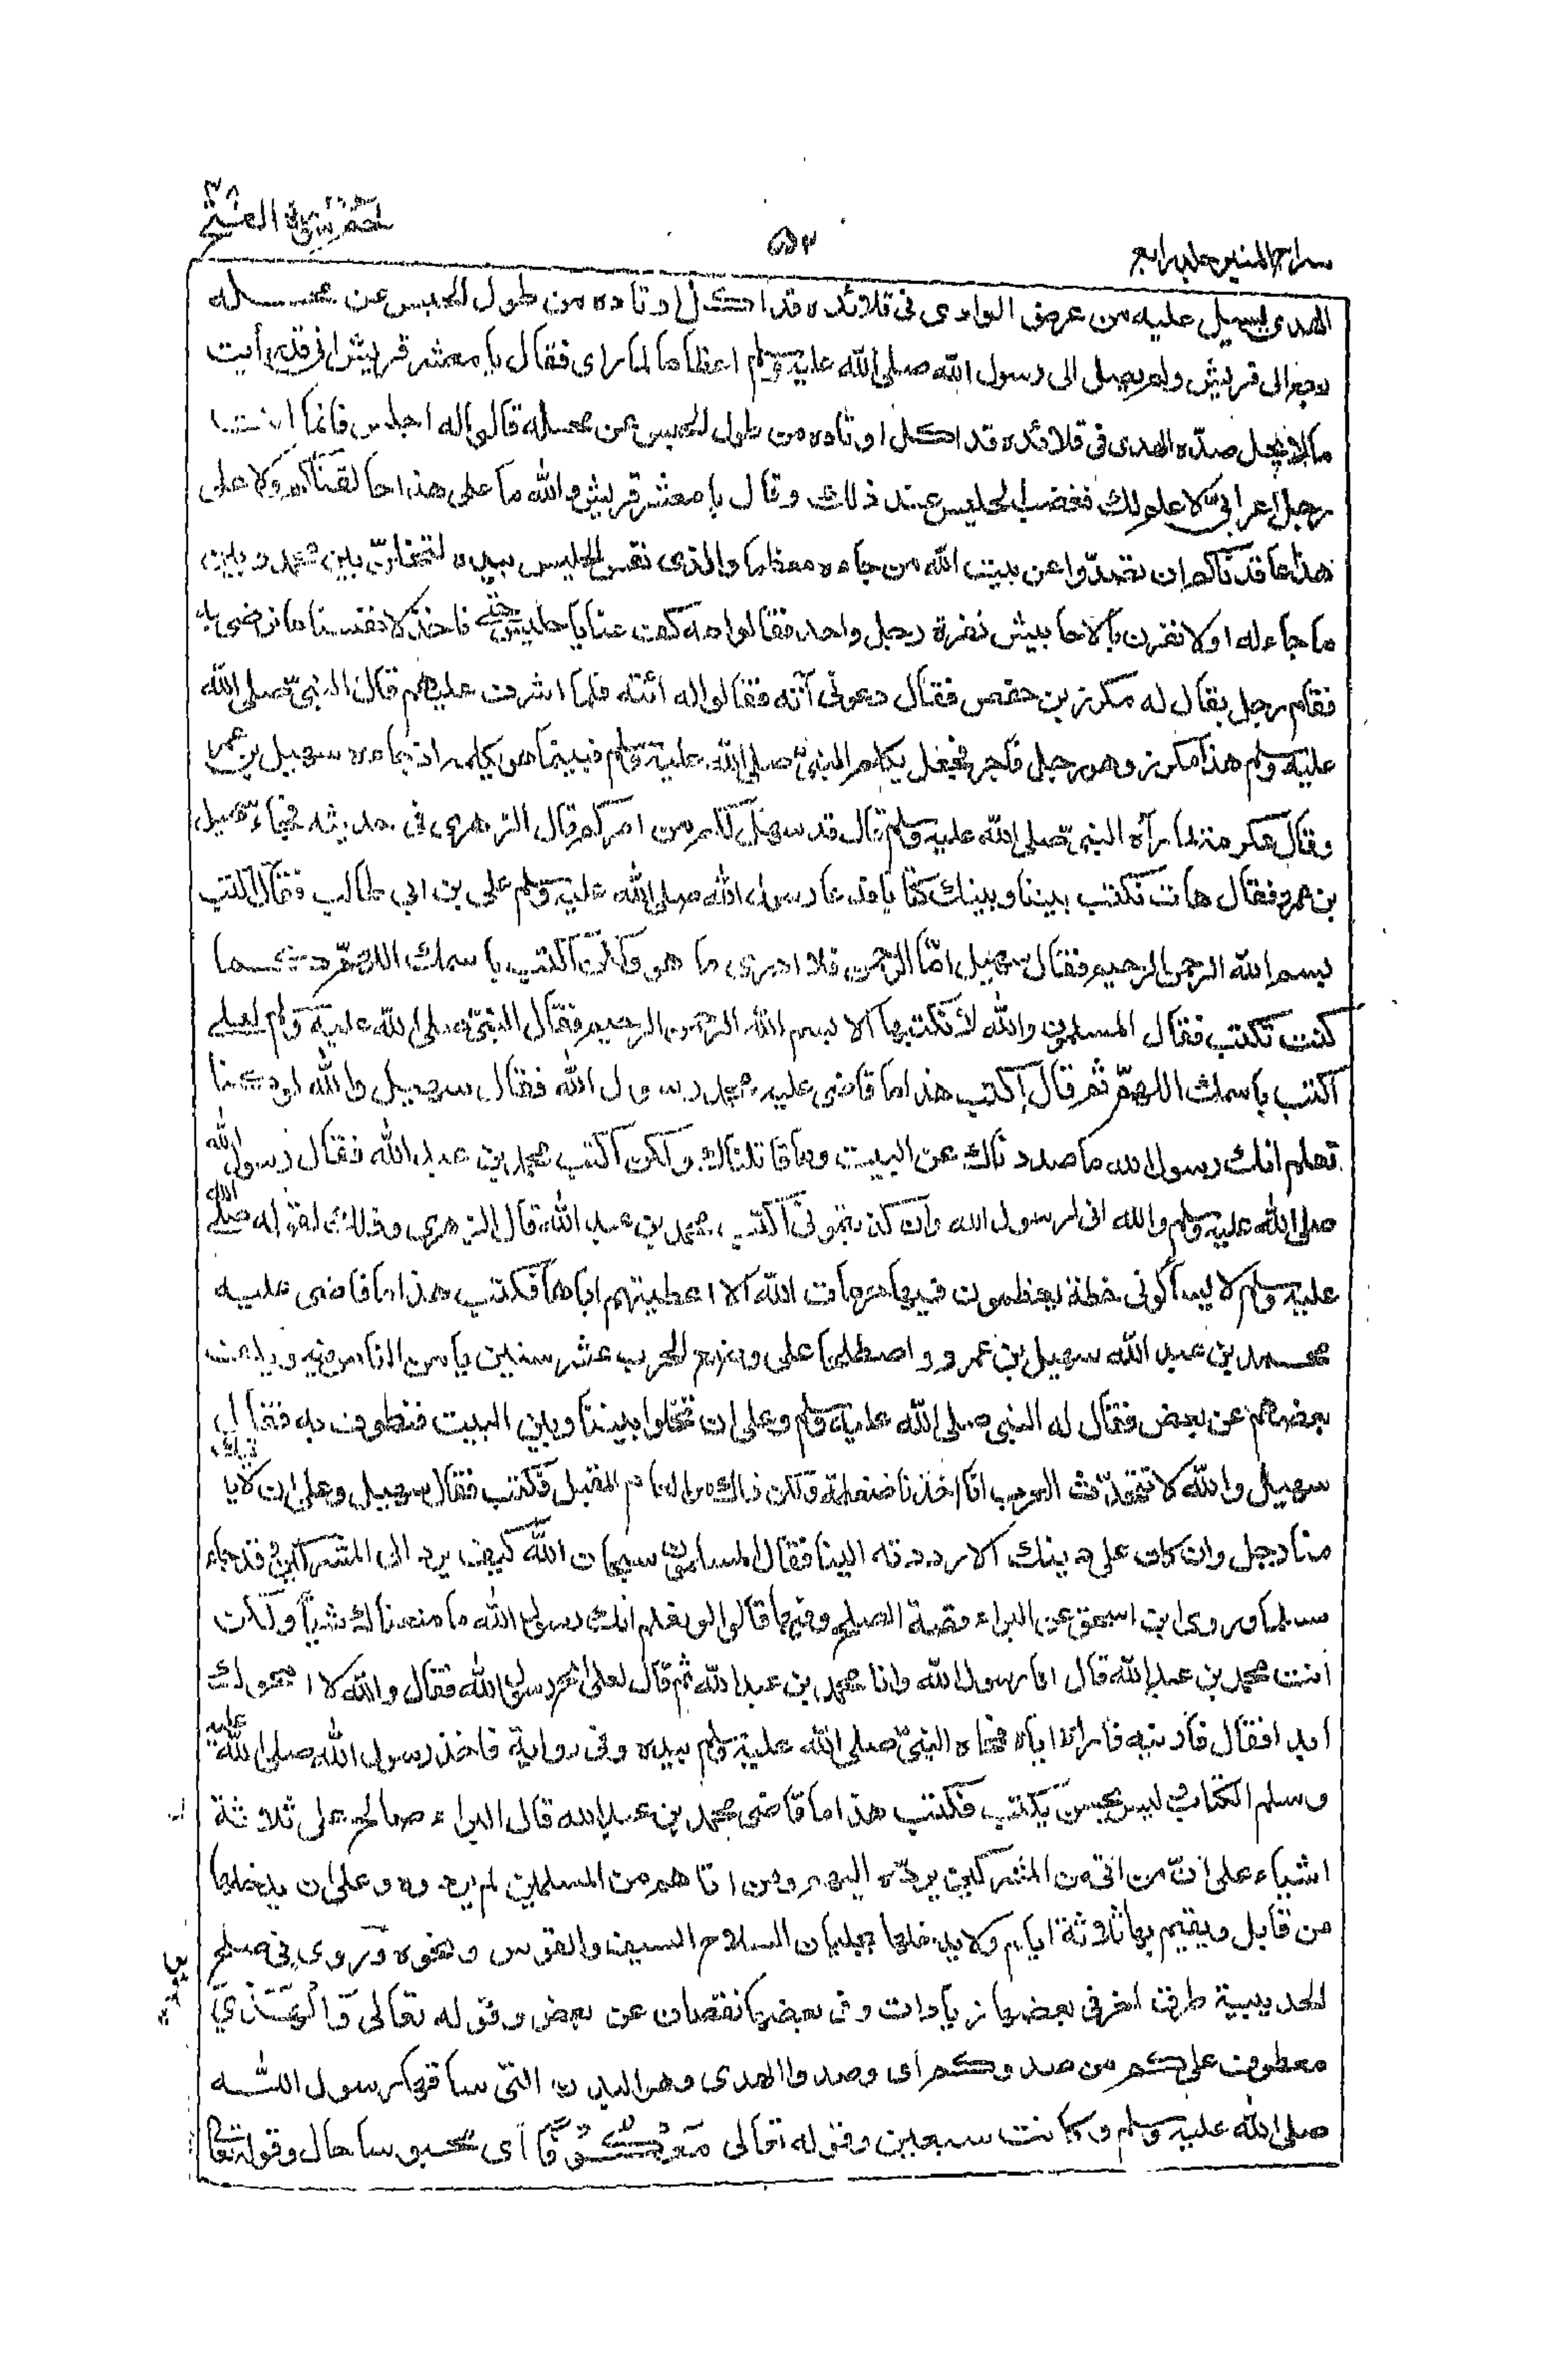 سراج المنير جلد رابع
۵۲
حٰمٓ ۲۶ الفتح ۴۸
الهدى يسيل عليه من عرض الوادى فى قلائده قد اكل اوتاده من طول الحبس عن محله
رجع الى قريش ولم يصل الى رسول الله صلى الله عليه وسلم اعظاما لما راى فقال يا معشر قريش انى قد رأيت
ما لا يحل صدّه الهدى فى قلائده قد اكل اوتاده من طول الحبس عن محله قالوا له اجلس فانما انت
رجل اعرابى لا علم لك فغضب الحليس عند ذلك وقال يا معشر قريش والله ما على هذا حالفناكم ولا على
هذا عاقدناكم ان تصدّوا عن بيت الله من جاءه معظما والذى نفس الحليس بيده لتخلنّ بين محمد وبين
ما جاء له اولا نفرن بالاحابيش نفرة رجل واحد فقالوا مه كف عنا يا حليس حتى ناخذ لانفسنا ما نرضى به
فقام رجل يقال له مكرز بن حفص فقال دعونى آته فقالوا له ائته فلما اشرف عليهم قال النبى صلى الله
عليه وسلم هذا مكرز وهو رجل فاجر فجعل يكلم النبى صلى الله عليه وسلم فبينما هو يكلمه اذ جاءه سهيل بن عمرو
وقال عكرمة لما رآه النبى صلى الله عليه وسلم قال قد سهل لكم من امركم قال الزهرى فى حديثه فجاء سهيل
بن عمرو فقال هات نكتب بيننا وبينك كتابا فدعا رسول الله صلى الله عليه وسلم على بن ابى طالب فقال اكتب
بسم الله الرحمن الرحيم فقال سهيل امّا الرحمن فلا ادرى ما هو ولكن اكتب باسمك اللهمّ كما
كنت تكتب فقال المسلمون والله لا نكتبها الا بسم الله الرحمن الرحيم فقال النبى صلى الله عليه وسلم لعلى
اكتب باسمك اللهمّ ثم قال اكتب هذا ما قاضى عليه محمد رسول الله فقال سهيل والله لو كنا
نعلم انك رسول الله ما صددناك عن البيت وما قاتلناك ولكن اكتب محمد بن عبد الله فقال رسول الله
صلى الله عليه وسلم والله انى لرسول الله وان كذبتمونى اكتب محمد بن عبد الله قال الزهرى وذلك لقوله صلى الله
عليه وسلم لا يسألونى خطة يعظمون فيها حرمات الله الا اعطيتهم اياها فكتب هذا ما قاضى عليه
محمد بن عبد الله سهيل بن عمرو واصطلحا على وضع الحرب عشر سنين يأمن الناس فيه ويكف
بعضهم عن بعض فقال له النبى صلى الله عليه وسلم وعلى ان تخلوا بيننا وبين البيت فنطوف به فقال
سهيل والله لا تتحدّث العرب انا اخذنا ضغطة ولكن ذلك من العام المقبل فكتب فقال سهيل وعلى ان لا يأتيك
منا رجل وان كان على دينك الا رددته الينا فقال المسلمون سبحان الله كيف يرد الى المشركين وقد جاء
مسلما وروى ابن اسحق عن البراء قصة الصلح وفيها قالوا لو نعلم انك رسول الله ما منعناك شيأ ولكن
انت محمد بن عبد الله قال انا رسول الله وانا محمد بن عبد الله ثم قال لعلى امح رسول الله فقال والله لا امحوك
ابدا فقال فأرنيه فاراه اياه فمحاه النبى صلى الله عليه وسلم بيده وفى رواية فاخذ رسول الله صلى الله عليه
وسلم الكتاب وليس يحسن يكتب فكتب هذا ما قاضى محمد بن عبد الله قال البراء صالح على ثلاثة
اشياء على انّ من اتى من المشركين يردّه اليهم ومن اتاهم من المسلمين لم يردوه وعلى ان يدخلها
من قابل ويقيم بها ثلاثة ايام ولا يدخلها بجلبان السلاح السيف والقوس ونحوه وروى فى صلح
الحديبية طرق اخر فى بعضها زيادات وفى بعضها نقصان عن بعض وقوله تعالى وَّالْهَدْيَ
معطوف على كم من صدوكم اى وصدوا الهدى وهو البدن التى ساقها رسول الله
صلى الله عليه وسلم وكانت سبعين وقوله تعالى مَعْكُوْفًا اى محبوسا حال وقوله تعالى